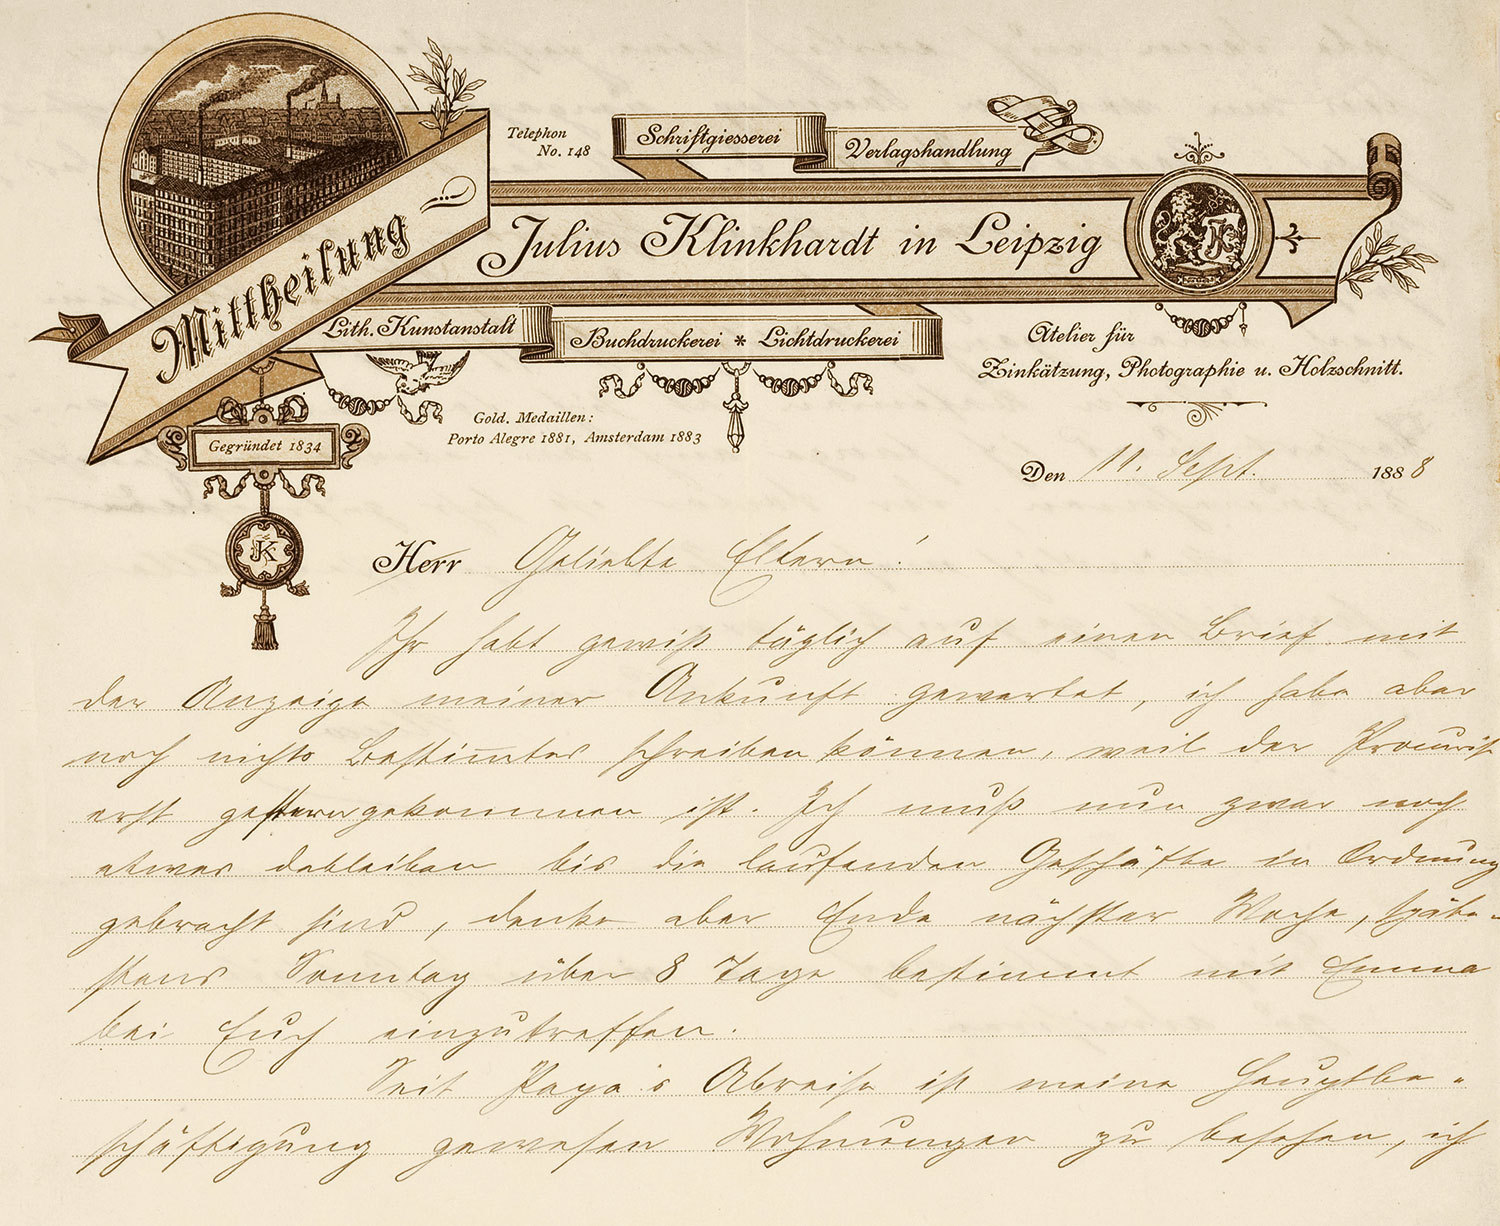 Telephon
No. 148
Schriftgiesserei
Verlagshandlung
Mittheilung
Julius Klinkhardt in Leipzig
JK
Lith. Kunstanstalt
Buchdruckerei * Lichtdruckerei
Atelier für
Zinkätzung, Photographie u. Holzschnitt.
Gold. Medaillen:
Porto Alegre 1881, Amsterdam 1883
Gegründet 1834
JK
Den 11. Sept. 1888
Herr Geliebte Eltern!
Ihr habt gewiß täglich auf einen Brief mit
der Anzeige meiner Ankunft gewartet, ich habe aber
noch nichts Bestimmtes schreiben können, weil der Procurist
erst gestern gekommen ist. Ich muß nun zwar noch
etwas dableiben bis die laufenden Geschäfte in Ordnung
gebracht sind, denke aber Ende nächster Woche, späte-
stens Sonntag über 8 Tage bestimmt mit Emma
bei Euch einzutreffen.
Seit Papa's Abreise ist meine Hauptbe-
schäftigung gewesen Wohnungen zu besehen, ich